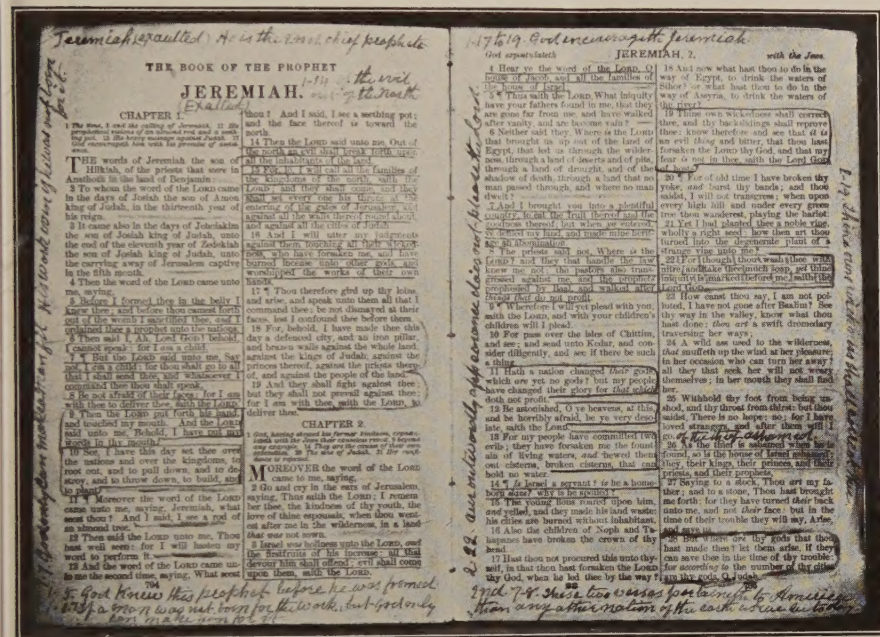 Jeremiah (exaulted) He is the 2nd chief prophets
THE BOOK OF THE PROPHET
JEREMIAH.
1-14 the evil
out of the North
(Exalted)
CHAPTER 1.
1 The time, 1 and the calling of Jeremiah. 11 His
prophetical visions of an almond rod and a seeth-
ing pot. 15 His heavy message against Judah. 17
God encourageth him with his promise of assist-
ance.
THE words of Jeremiah the son of
Hilkiah, of the priests that were in
Anathoth in the land of Benjamin:
2 To whom the word of the LORD came
in the days of Josiah the son of Amon
king of Judah, in the thirteenth year of
his reign.
3 It came also in the days of Jehoiakim
the son of Josiah king of Judah, unto
the end of the eleventh year of Zedekiah
the son of Josiah king of Judah, unto
the carrying away of Jerusalem captive
in the fifth month.
4 Then the word of the LORD came unto
me, saying,
5 Before I formed thee in the belly I
knew thee; and before thou camest forth
out of the womb I sanctified thee, and I
ordained thee a prophet unto the nations.
6 Then said I, Ah, Lord GOD! behold,
I cannot speak: for I am a child.
7 ¶ But the LORD said unto me, Say
not, I am a child: for thou shalt go to all
that I shall send thee, and whatsoever I
command thee thou shalt speak.
8 Be not afraid of their faces: for I am
with thee to deliver thee, saith the LORD.
9 Then the LORD put forth his hand,
and touched my mouth. And the LORD
said unto me, Behold, I have put my
words in thy mouth.
10 See, I have this day set thee over
the nations and over the kingdoms, to
root out, and to pull down, and to de-
stroy, and to throw down, to build, and
to plant.
11 ¶ Moreover the word of the LORD
came unto me, saying, Jeremiah, what
seest thou? And I said, I see a rod of
an almond tree.
12 Then said the LORD unto me, Thou
hast well seen: for I will hasten my
word to perform it.
13 And the word of the LORD came un-
to me the second time, saying, What seest
794
thou? And I said, I see a seething pot;
and the face thereof is toward the
north.
14 Then the LORD said unto me, Out of
the north an evil shall break forth upon
all the inhabitants of the land.
15 For, lo, I will call all the families of
the kingdoms of the north, saith the
LORD; and they shall come, and they
shall set every one his throne at the
entering of the gates of Jerusalem, and
against all the walls thereof round about,
and against all the cities of Judah.
16 And I will utter my judgments
against them touching all their wicked-
ness, who have forsaken me, and have
burned incense unto other gods, and
worshipped the works of their own
hands.
17 ¶ Thou therefore gird up thy loins,
and arise, and speak unto them all that I
command thee: be not dismayed at their
faces, lest I confound thee before them.
18 For, behold, I have made thee this
day a defenced city, and an iron pillar,
and brasen walls against the whole land,
against the kings of Judah, against the
princes thereof, against the priests there-
of, and against the people of the land.
19 And they shall fight against thee;
but they shall not prevail against thee;
for I am with thee, saith the LORD, to
deliver thee.
CHAPTER 2.
MOREOVER the word of the LORD
came to me, saying,
2 Go and cry in the ears of Jerusalem,
saying, Thus saith the LORD; I remem-
ber thee, the kindness of thy youth, the
love of thine espousals, when thou went-
est after me in the wilderness, in a land
that was not sown.
3 Israel was holiness unto the LORD, and
the firstfruits of his increase: all that
devour him shall offend; evil shall come
upon them, saith the LORD.
5. God knew this prophet before he was fromed
if a man was not born for the work, but God only
can make
1-17 to 19. God encourageth Jeremiah
God expostulateth
JEREMIAH, 2.
with the Jews.
4 Hear ye the word of the LORD, O
house of Jacob, and all the families of
the house of Israel:
5 ¶ Thus saith the LORD, What iniquity
have your fathers found in me, that they
are gone far from me, and have walked
after vanity, and are become vain?
6 Neither said they, Where is the LORD
that brought us up out of the land of
Egypt, that led us through the wilder-
ness, through a land of deserts and of pits,
through a land of drought, and of the
shadow of death, through a land that no
man passed through, and where no man
dwelt?
7 And I brought you into a plentiful
country, to eat the fruit thereof and the
goodness thereof; but when ye entered,
ye defiled my land, and made mine herit-
age an abomination.
8 The priests said not, Where is the
LORD? and they that handle the law
knew me not: the pastors also trans-
gressed against me, and the prophets
prophesied by Baal, and walked after
things that do not profit.
9 ¶ Wherefore I will yet plead with you,
saith the LORD, and with your children's
children will I plead.
10 For pass over the isles of Chittim,
and see; and send unto Kedar, and con-
sider diligently, and see if there be such
a thing.
11 Hath a nation changed their gods,
which are yet no gods? but my people
have changed their glory for that which
doth not profit.
12 Be astonished, O ye heavens, at this,
and be horribly afraid, be ye very deso-
late, saith the LORD.
13 For my people have committed two
evils; they have forsaken me the fount-
ain of living waters, and hewed them
out cisterns, broken cisterns, that can
hold no water.
14 ¶ Is Israel a servant? is he a home-
born slave? why is he spoiled?
15 The young lions roared upon him,
and yelled, and they made his land waste:
his cities are burned without inhabitant.
16 Also the children of Noph and Ta-
hapanes have broken the crown of thy
head.
17 Hast thou not procured this unto thy-
self, in that thou hast forsaken the LORD
thy God, when he led thee by the way?
18 And now what hast thou to do in the
way of Egypt, to drink the waters of
Sihor? or what hast thou to do in the
way of Assyria, to drink the waters of
the river?
19 Thine own wickedness shall correct
thee, and thy backslidings shall reprove
thee: know therefore and see that it is
an evil thing and bitter, that thou hast
forsaken the LORD thy God, and that my
fear is not in thee, saith the Lord GOD
of hosts.
20 ¶ For of old time I have broken thy
yoke, and burst thy bands; and thou
saidst, I will not transgress; when upon
every high hill and under every green
tree thou wanderest, playing the harlot.
21 Yet I had planted thee a noble vine,
wholly a right seed: how then art thou
turned into the degenerate plant of a
strange vine unto me?
22 For though thou wash thee with
nitre, and take thee much soap, yet thine
iniquity is marked before me, saith the
Lord GOD.
23 How canst thou say, I am not pol-
luted, I have not gone after Baalim? See
thy way in the valley, know what thou
hast done: thou art a swift dromedary
traversing her ways;
24 A wild ass used to the wilderness,
that snuffeth up the wind at her pleasure;
in her occasion who can turn her away?
all they that seek her will not weary
themselves; in her month they shall find
her.
25 Withhold thy foot from being un-
shod, and thy throat from thirst: but thou
saidst, There is no hope: no; for I have
loved strangers, and after them will I
go.
26 As the thief is ashamed when he is
found, so is the house of Israel ashamed;
they, their kings, their princes, and their
priests, and their prophets,
27 Saying to a stock, Thou art my fa-
ther; and to a stone, Thou hast brought
me forth: for they have turned their back
unto me, and not their face: but in the
time of their trouble they will say, Arise,
and save us.
28 But where are thy gods that thou
hast made thee? let them arise, if they
can save thee in the time of thy trouble:
for according to the number of thy cities
are thy gods, O Judah.
2-22 our outwardly appearance does not please the Lord.
2nd 7-8. These two verses pertaineth to America
than any other nation of the earth